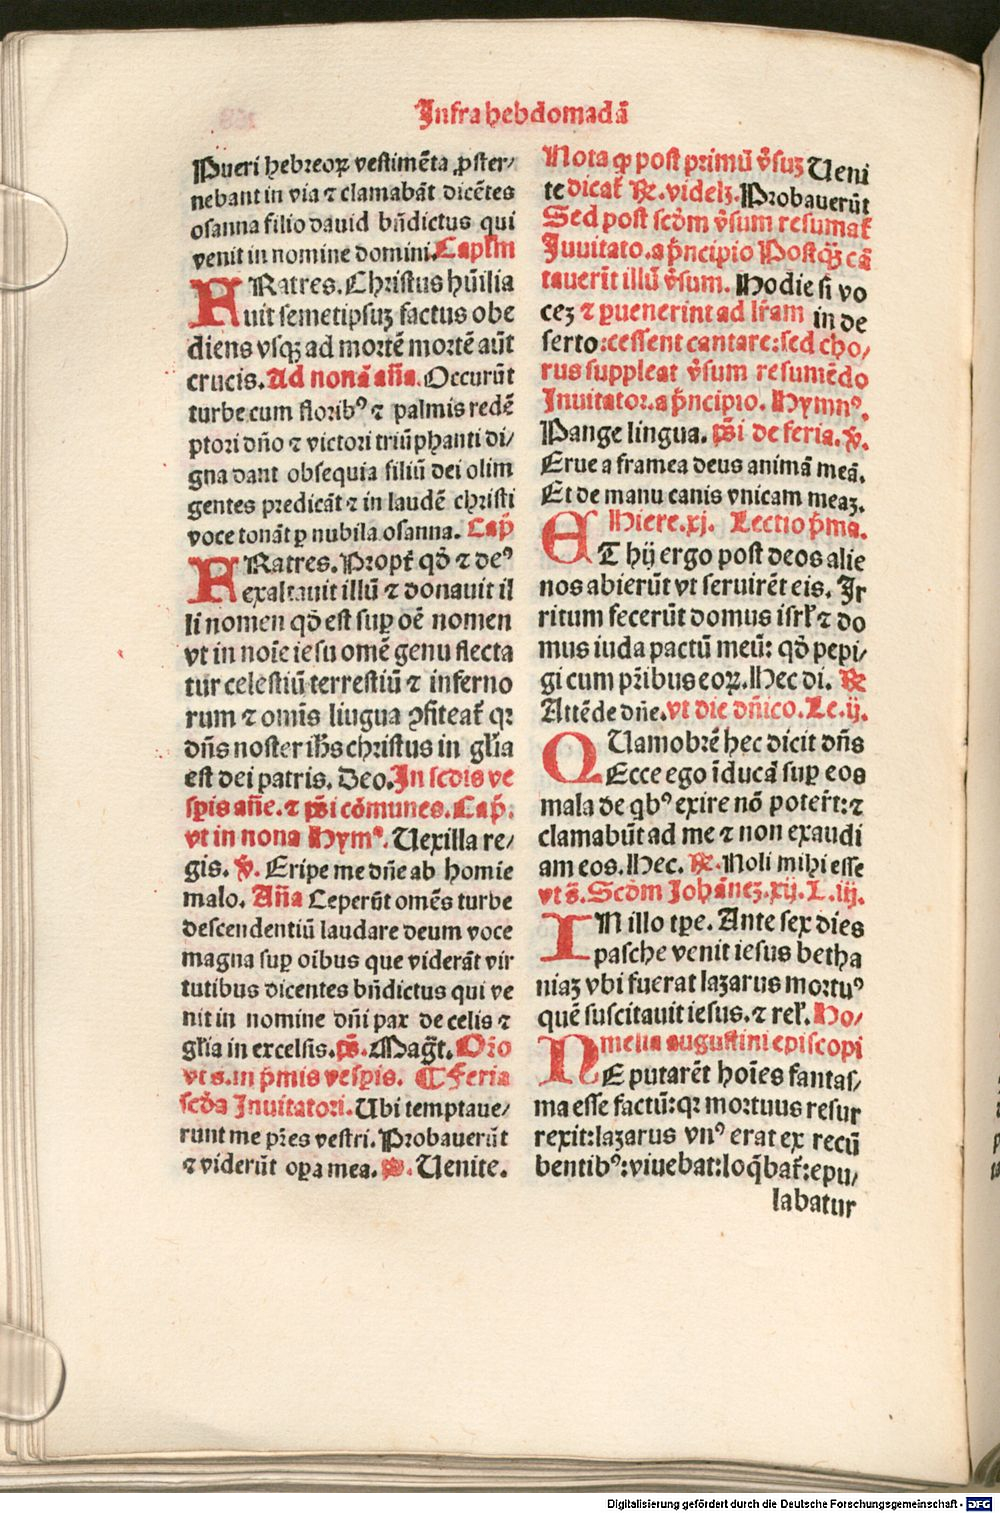 Infra hebdomadã
Pueri hebreoꝝ vestimẽta ꝓster⸗
nebant in via ⁊ clamabãt dicẽtes
osanna filio dauid bñdictus qui
venit in nomine domini. Capłm
FRatres. Christus hũilia
uit semetipsuꝫ factus obe
diens vsqꝫ ad mortẽ mortẽ aũt
crucis. Ad nonã aña. Occurũt
turbe cum floribꝰ ⁊ palmis redẽ
ptori dño ⁊ victori triũphanti di⸗
gna dant obsequia filiũ dei olim
gentes predicãt ⁊ in laudẽ christi
voce tonãt ꝑ nubila osanna. Cap̃
FRatres. Propt̃ qd̃ ⁊ deꝰ
exaltauit illũ ⁊ donauit il
li nomen qd̃ est suꝑ oẽ nomen
vt in noĩe iesu omẽ genu flecta
tur celestiũ terrestiũ ⁊ inferno
rum ⁊ omĩs liugua ꝯfiteat̃ qꝛ
dñs noster ih̃s christus in gl̃ia
est dei patris. Deo. In scd̃is ve
sꝑis añe. ⁊ ps̃i cõmunes. Cap̃.
vt in nona Hymꝰ. Uexilla re⸗
gis. v̊. Eripe me dñe ab homie
malo. Aña Ceperũt omẽs turbe
descendentiũ laudare deum voce
magna suꝑ oĩbus que viderãt vir
tutibus dicentes bñdictus qui ve
nit in nomine dñi pax de celis ⁊
gl̃ia in excelsis. ps̃. Mag̃t. Or̃o
vt s. in p̃mis vesꝑis. ¶ Feria
scd̃a Inuitatori. Ubi temptaue⸗
runt me pr̃es vestri. Probauerũt
⁊ viderũt oꝑa mea. ps̃. Uenite.
Nota ꝙ post primũ v̊suꝫ Ueni
te dicat̃ ℟. videlꝫ. Probauerũt
Sed post scd̃m v̊sum resumat̃
Iuuitato. a p̃ncipio Postqꝫ cã
tauerĩt illũ v̊sum. Hodie si vo
ceꝫ ⁊ ꝑuenerint ad lr̃am in de
serto: cessent cantare: sed cho⸗
rus suppleat v̊sum resumẽdo
Inuitator. a p̃ncipio. Hymnꝰ.
Pange lingua. ps̃i de feria. v̊.
Erue a framea deus animã meã.
Et de manu canis vnicam meaꝫ.
Hiere. xj. Lectio p̃ma.
ET hij ergo post deos alie
nos abierũt vt seruirẽt eis. Ir
ritum fecerũt domus isrl̃ ⁊ do
mus iuda pactũ meũ: qd̃ pepi⸗
gi cum pr̃ibus eoꝝ. Hec di. ℟
Attẽde dñe. vt die dñico. Le. ij.
QUamobrẽ hec dicit dñs
Ecce ego ĩducã suꝑ eos
mala de qbꝰ exire nõ poter̃t: ⁊
clamabũt ad me ⁊ non exaudi
am eos. Hec. ℟. Noli mihi esse
vt s̃. Scd̃m Johãneꝫ. xij. L. iij.
IN illo tp̃e. Ante sex dies
pasche venit iesus betha
niaꝫ vbi fuerat lazarus mortuꝰ
quẽ suscitauit iesus. ⁊ rel̃. Ho⸗
melia augustini episcopi
NE putarẽt hoĩes fantas⸗
ma esse factũ: qꝛ mortuus resur
rexit: lazarus vnꝰ erat ex recũ
bentibꝰ: viuebat: loq̃bat̃: epu⸗
labatur
Digitalisierung gefördert durch die Deutsche Forschungsgemeinschaft - DFG